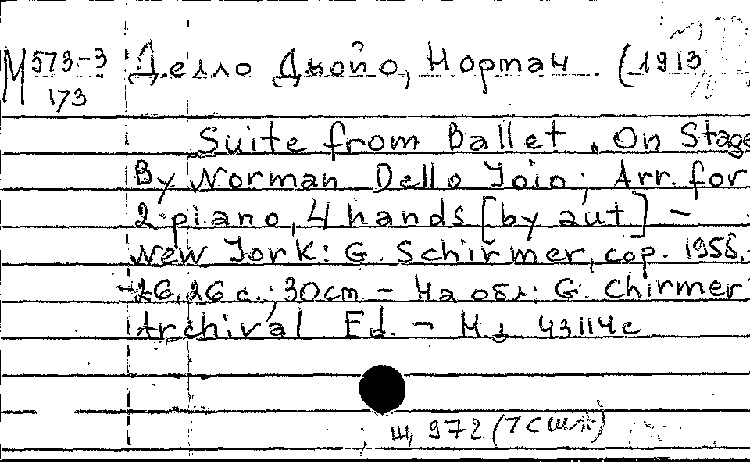 М 573-3 Делло Джойо, Норман (1913
173
Suite from Ballet. On Stage
By Norman Dello Join; Arr. for
2 piano, 4 hands [by aut.] –
New York: G. Schirmer, cop. 1958.-
-26, 26 с.; 30cm – На обл: G. Chirmer
Archival Ed. – Н.д 43114c
Ш, 972 (7с